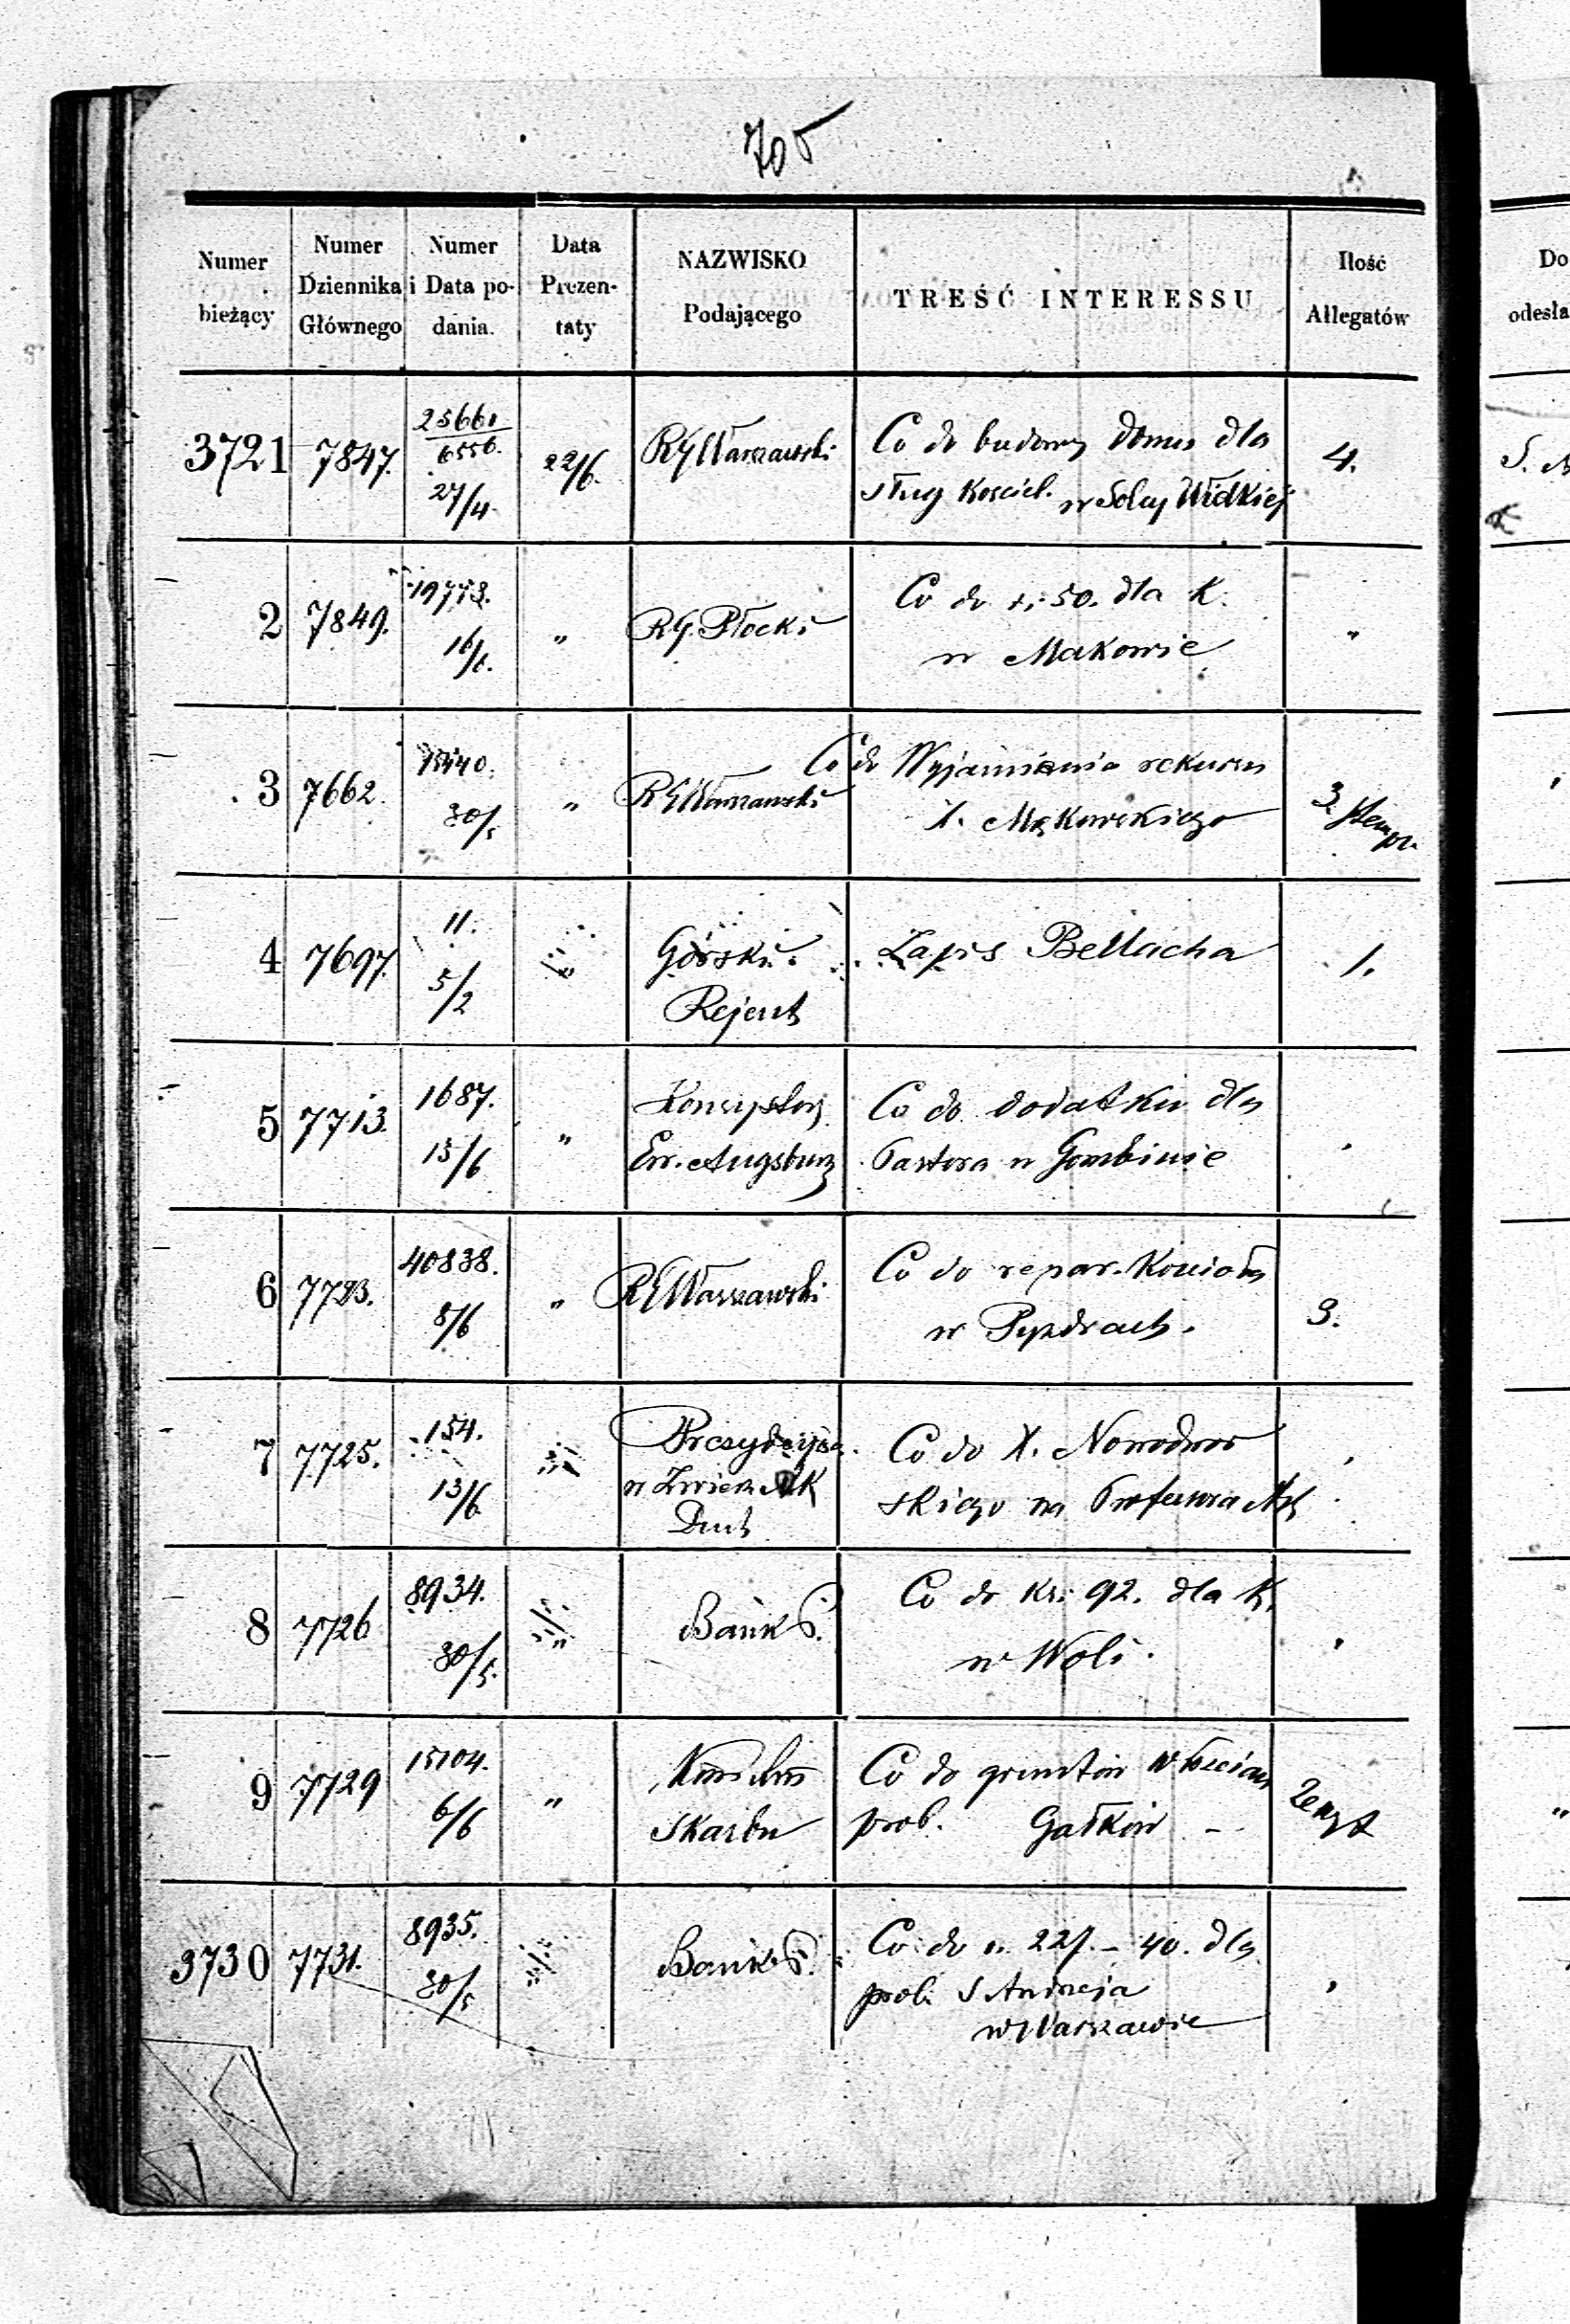 705
Numer bieżący
Numer Dziennika Głównego
Numer i Data podania.
Data Prezentaty
NAZWISKO Podającego
TREŚĆ INTERESSU
Ilość Allegatów
Do
odesła
3721 7847. 25660/6556. 27/4. 22/6. RG Warszawski Co do budowy domu dla 4.
sług Kościel. w Woli
2 7849. 19773. 16/6. " RG. Płocki Co do rs. 50. dla K. "
w Makowie
3 7662. 30/5 " RG Warszawski Co do Wyjaśnienia rekursu 3. stempr.
X. Mąkowskiego
4 7697. 11. 5/2 Górski Zapis Bellacha 1.
Rejent
5 7713. 1687. 15/6 " Konsystorz Co do dodatku dla
Ew. Augsburg Pastora w Gombinie
6 7723. 40838. 8/6 " RG Warszawski Co do repar. Kościoła 3.
w Pyzdrach.
7 7725. 154. 13/6 Prezydujący Co do X. Nowodwor
w Zwierz. AK skiego na Profesora
Duch
8 7726 8934. 30/5. Bank P. Co do Kr: 92. dla K.
w Woli.
9 7729 15104. 6/6 " Co do gruntów Włościan
Skarbu prob. Gałków –
3730 7731. 8935. 30/5 Bank P. Co do rs. 227. – 40. dla
prob. S Andrzeja
w Warszawie